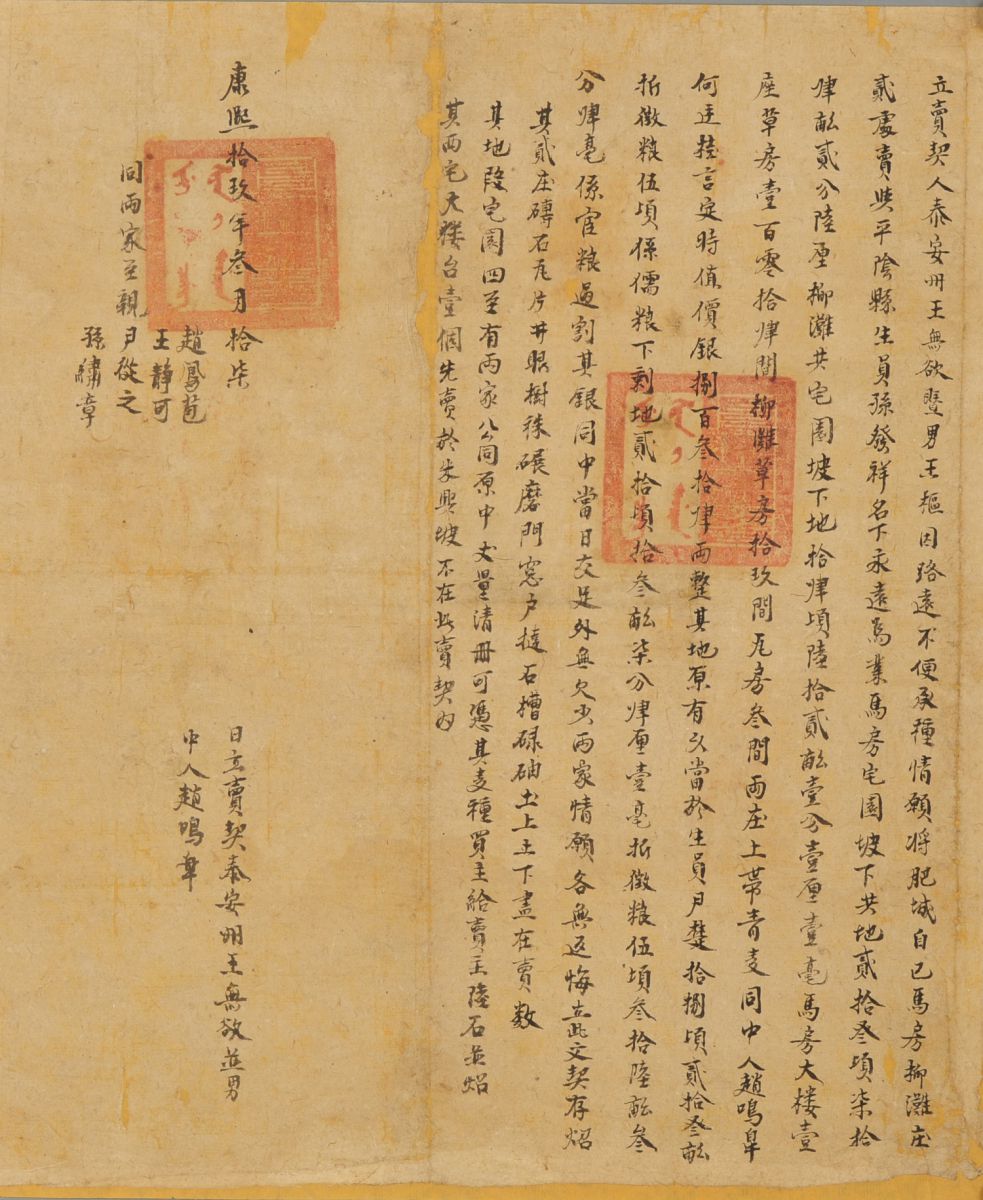 立賣契人泰安州王無欲暨男王樞因路遠不便承種情願將肥城自己馬房柳灘庄
貳處賣與平陰縣生員孫發祥名下永遠爲業馬房宅園坡下共地貳拾叄頃柒拾
肆畝貳分陸厘柳灘共宅園坡下地拾肆頃陸拾貳畝壹分壹厘壹毫馬房大樓壹
座草房壹百零拾肆間柳灘草房拾玖間瓦房叄間兩庄上帶青麦同中人趙鳴皐
何廷 言定時值價銀捌百叄拾肆兩整其地原有文當於生員尸 拾捌頃貳拾叄畝
折徵粮伍頃係儒粮下剩地貳拾頃拾叄畝柒分肆厘壹毫折徵粮伍頃叄拾陸畝叄
分肆毫係官粮過割其銀同中當日交足外無欠少兩家情願各無返悔立此文契存炤
其貳庄磚石瓦片井眼樹株碾磨門窓户 石槽碌砘土上土下盡在賣数
其地段宅園四至有兩家公同原中丈量清冊可憑其麦種買主給賣主陸石並炤
其西宅大樓台壹個先賣於朱興坡不在此賣契内
康熙拾玖年叄月拾柒
日立賣契泰安州王無欲並男
中人趙鳴皐
趙鳳苞
王靜可
同兩家至親尹從之
孫繡章